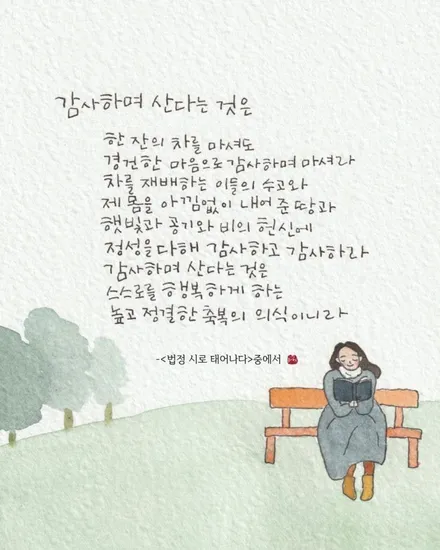 감사하며 산다는 것은
한 잔의 차를 마셔도
경건한 마음으로 감사하며 마셔라
차를 재배하는 이들의 수고와
제 몸을 아낌없이 내어 준 땅과
햇빛과 공기와 비의 헌신에
정성을 다해 감사하고 감사하라
감사하며 산다는 것은
스스로를 행복하게 하는
높고 정결한 축복의 의식이니라
-<법정 시로 태어나다>중에서